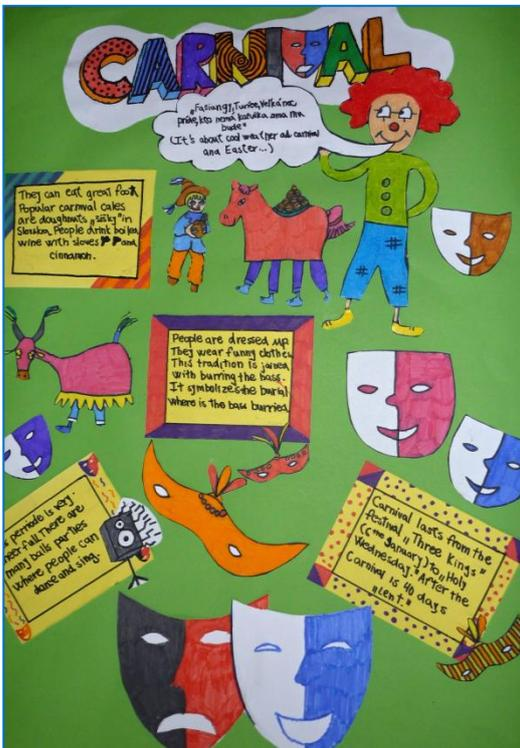 CARNIVAL
„Fašiangy, Turíce, Veľká noc
príde, kto nemá kožuška zima mu
bude"
(It's about cool weather ad carnival
and Easter...)
They can eat great food.
Popular carnival cakes
are doughnuts „šišky" in
Slovakia. People drink boiled
wine with sloves and
cinnamon.
People are dressed up
They wear funny clothes
This tradition is joined
with burring the bass.
It symbolizes the burial
where is the bass burried
periode is very
cheerfull. There are
many balls parties
where people can
dance and sing.
Carnival lasts from the
festival „Three Kings"
(6th January) to „Holy
Wednesday." After the
Carnival is 40 days
„lent"